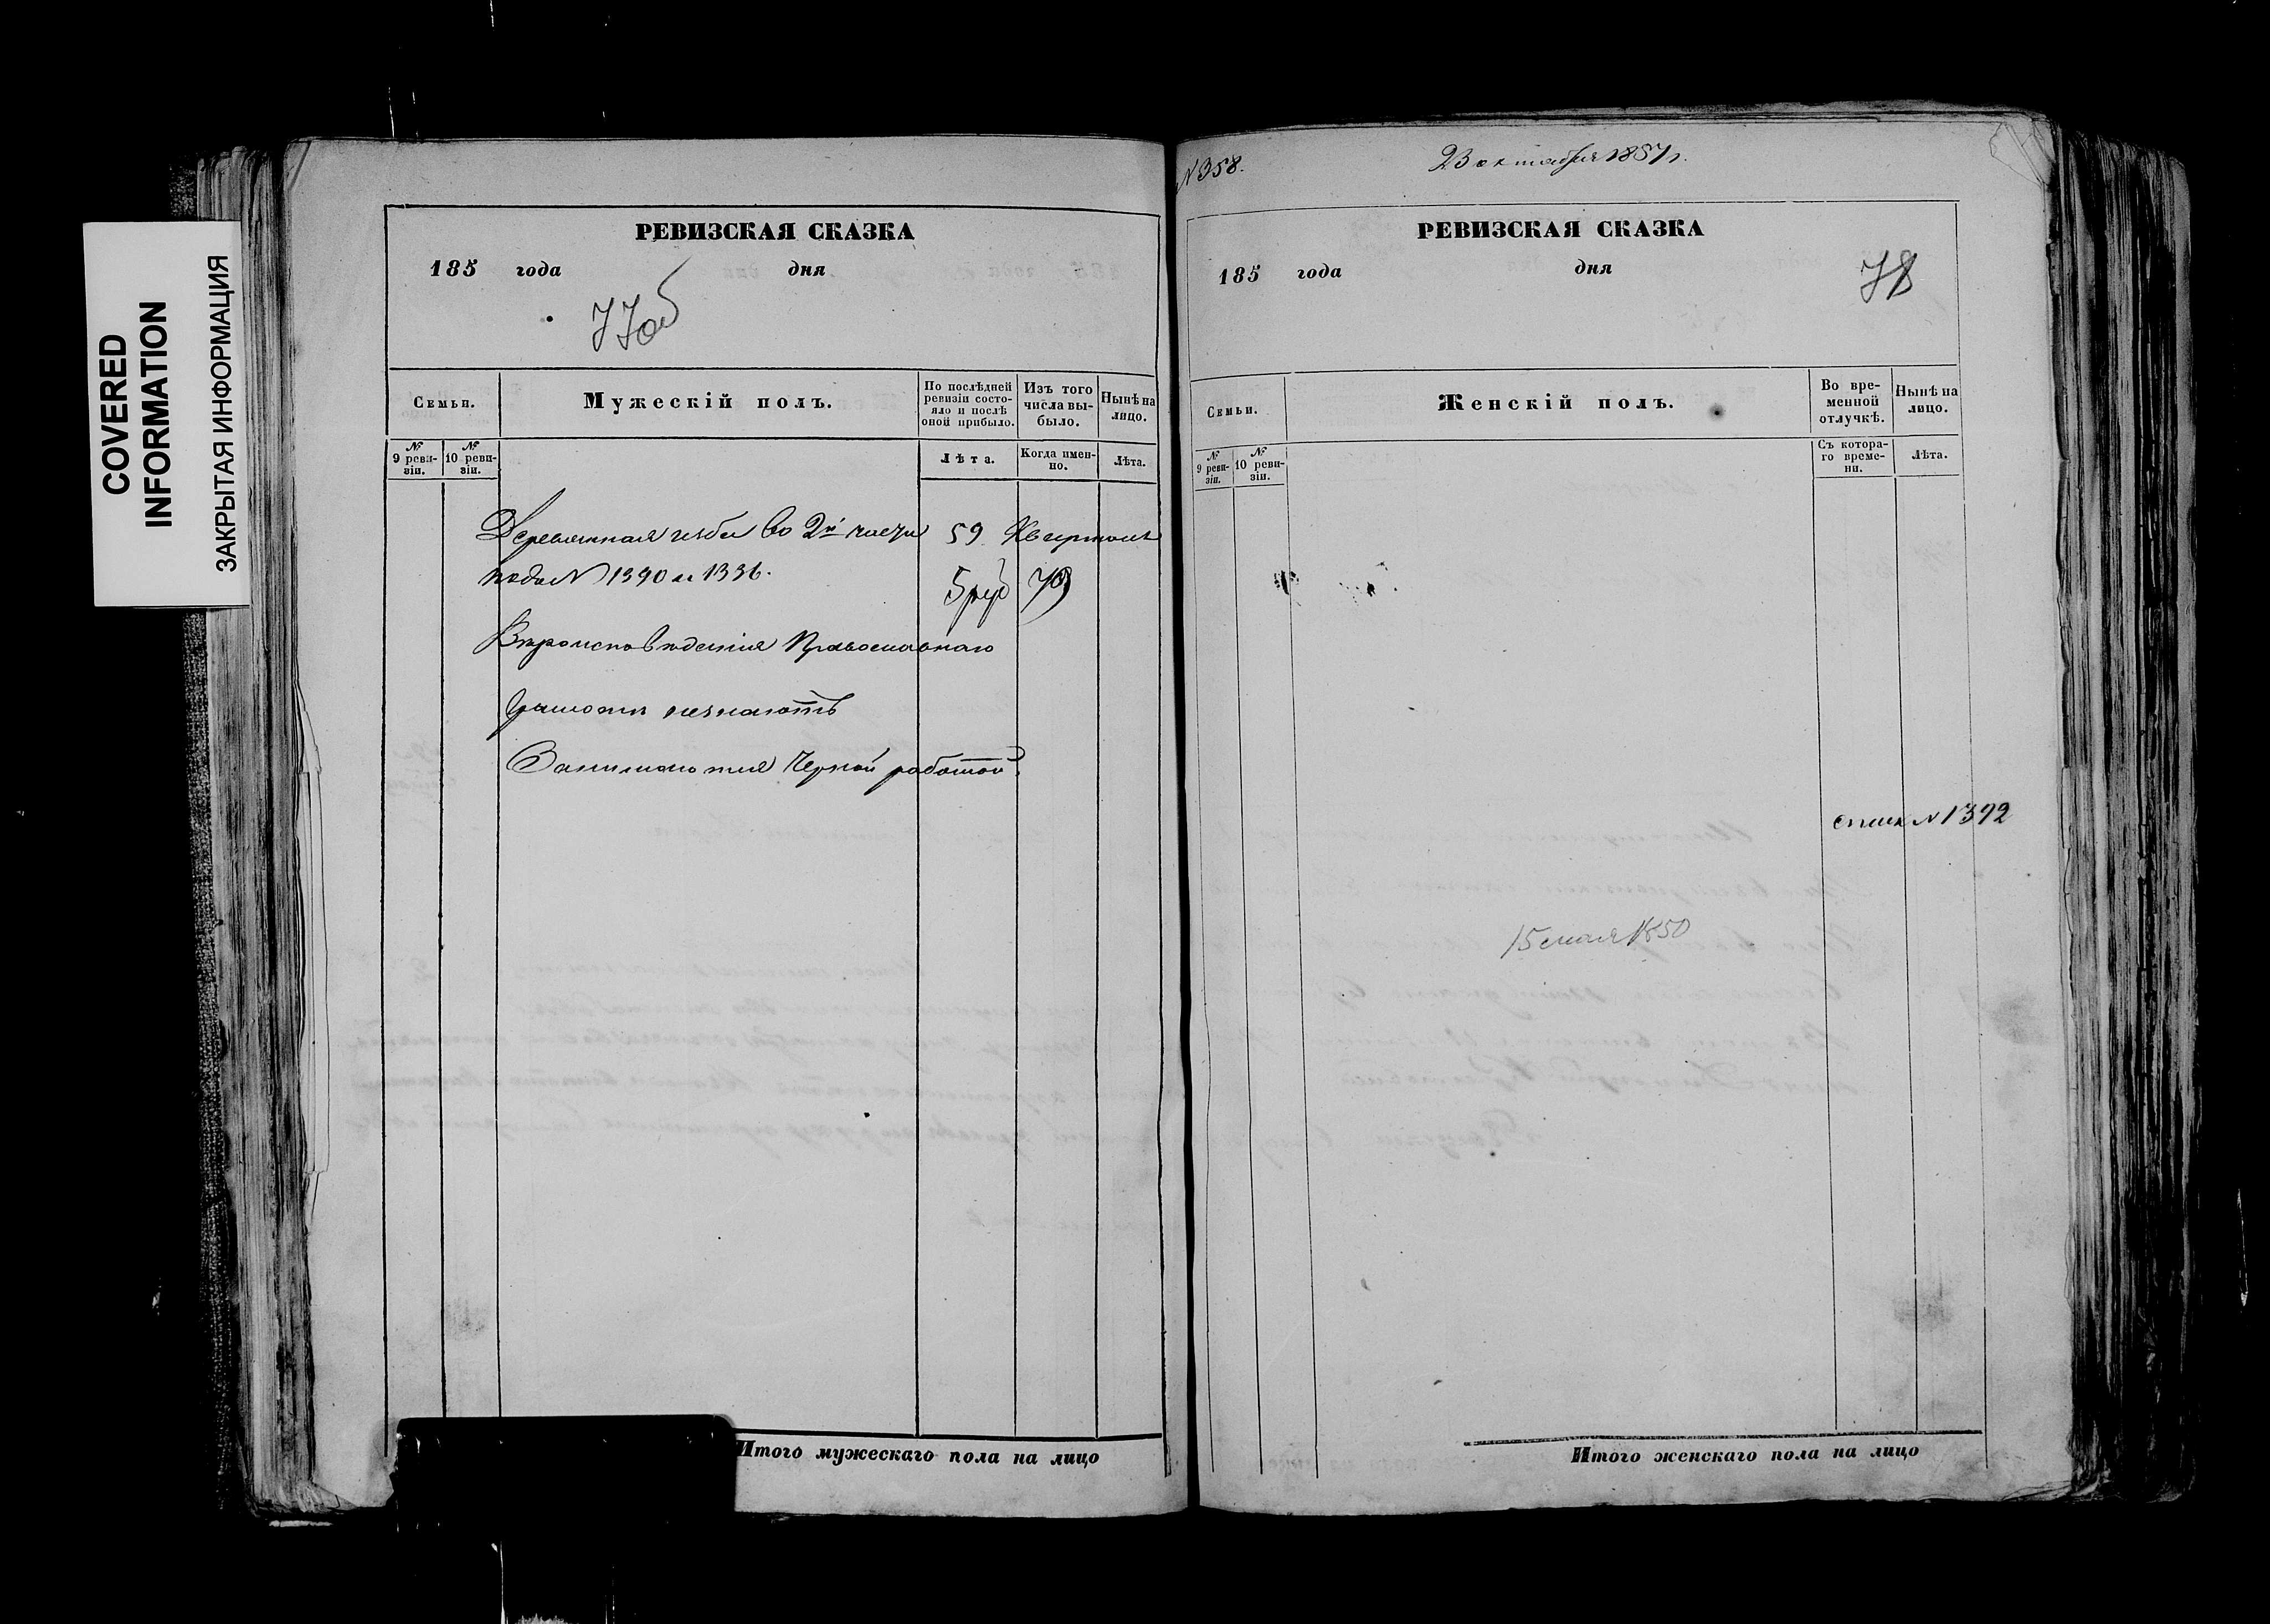 COVERED
INFORMATION
ЗАКРЫТАЯ ИНФОРМАЦИЯ
РЕВИЗСКАЯ СКАЗКА
185 года дня
77об
Семьи.
Мужескій полъ.
По послѣдней
ревизіи состо-
яло и послѣ
оной прибыло.
Изъ того
числа вы-
было.
Нынѣ на
лицо.
№
9 реви-
зіи.
№
10 реви-
зіи.
Лѣта.
Когда имен-
но.
Лѣта.
Деревянная изба во 2й части 59 Квартала
подъ N 1390 и 1336.
5 руб 70
Вѣроисповѣданія Православнаго
Грамоты незнаютъ
Занимаются Черной работой.
Итого мужескаго пола на лицо
N 358.
23 октября 1857 г.
РЕВИЗСКАЯ СКАЗКА
185 года дня
78
Семьи.
Женскій полъ.
Во вре-
менной
отлучкѣ.
Нынѣ на
лицо.
№
9 реви-
зіи.
№
10 реви-
зіи.
Съ котора-
го време-
ни.
Лѣта.
N 1392
15 мая 1850
Итого женскаго пола на лицо